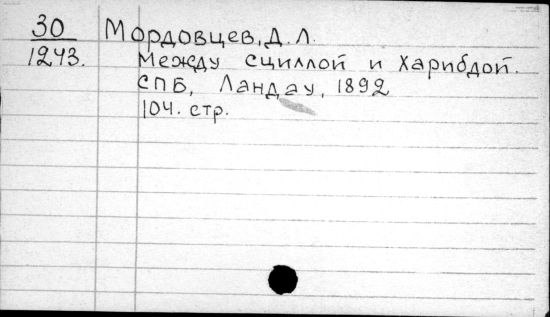 30 Мордовцев, Д. Л.
1243. Между Сциллой и Харибдой.
СПБ, Ландау, 1892
104. стр.